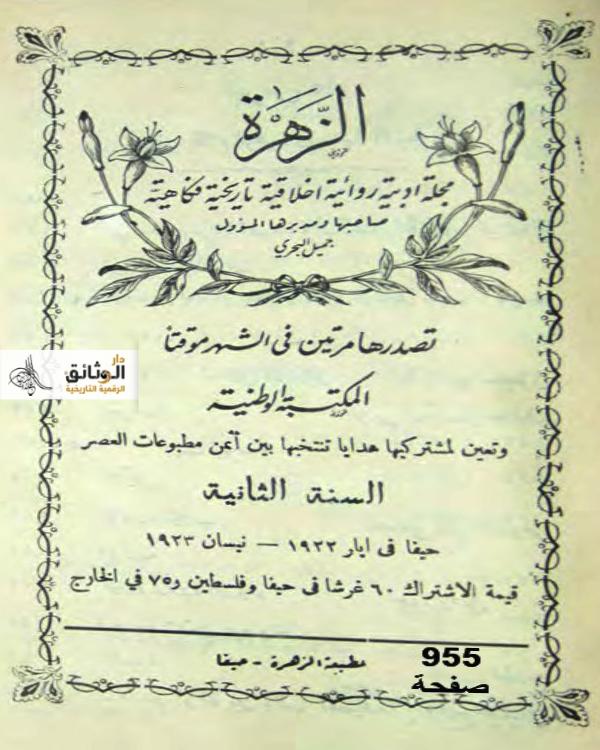 الزهرة
مجلة ادبية روائية اخلاقية تاريخية فكاهية
صاحبها ومديرها المسؤول
جميل البحري
تصدرها مرتين فى الشهر موقتا
المكتبة الوطنية
وتعين لمشتركيها هدايا تنتخبها بين أثمن مطبوعات العصر
السنة الثانية
حيفا فى ايار ١٩٢٢ — نيسان ١٩٢٣
قيمة الاشتراك ٦٠ غرشا فى حيفا وفلسطين و٧٥ في الخارج
مطبعة الزهرة - حيفا
955
صفحة
دار
الوثائق
الرقمية التاريخية